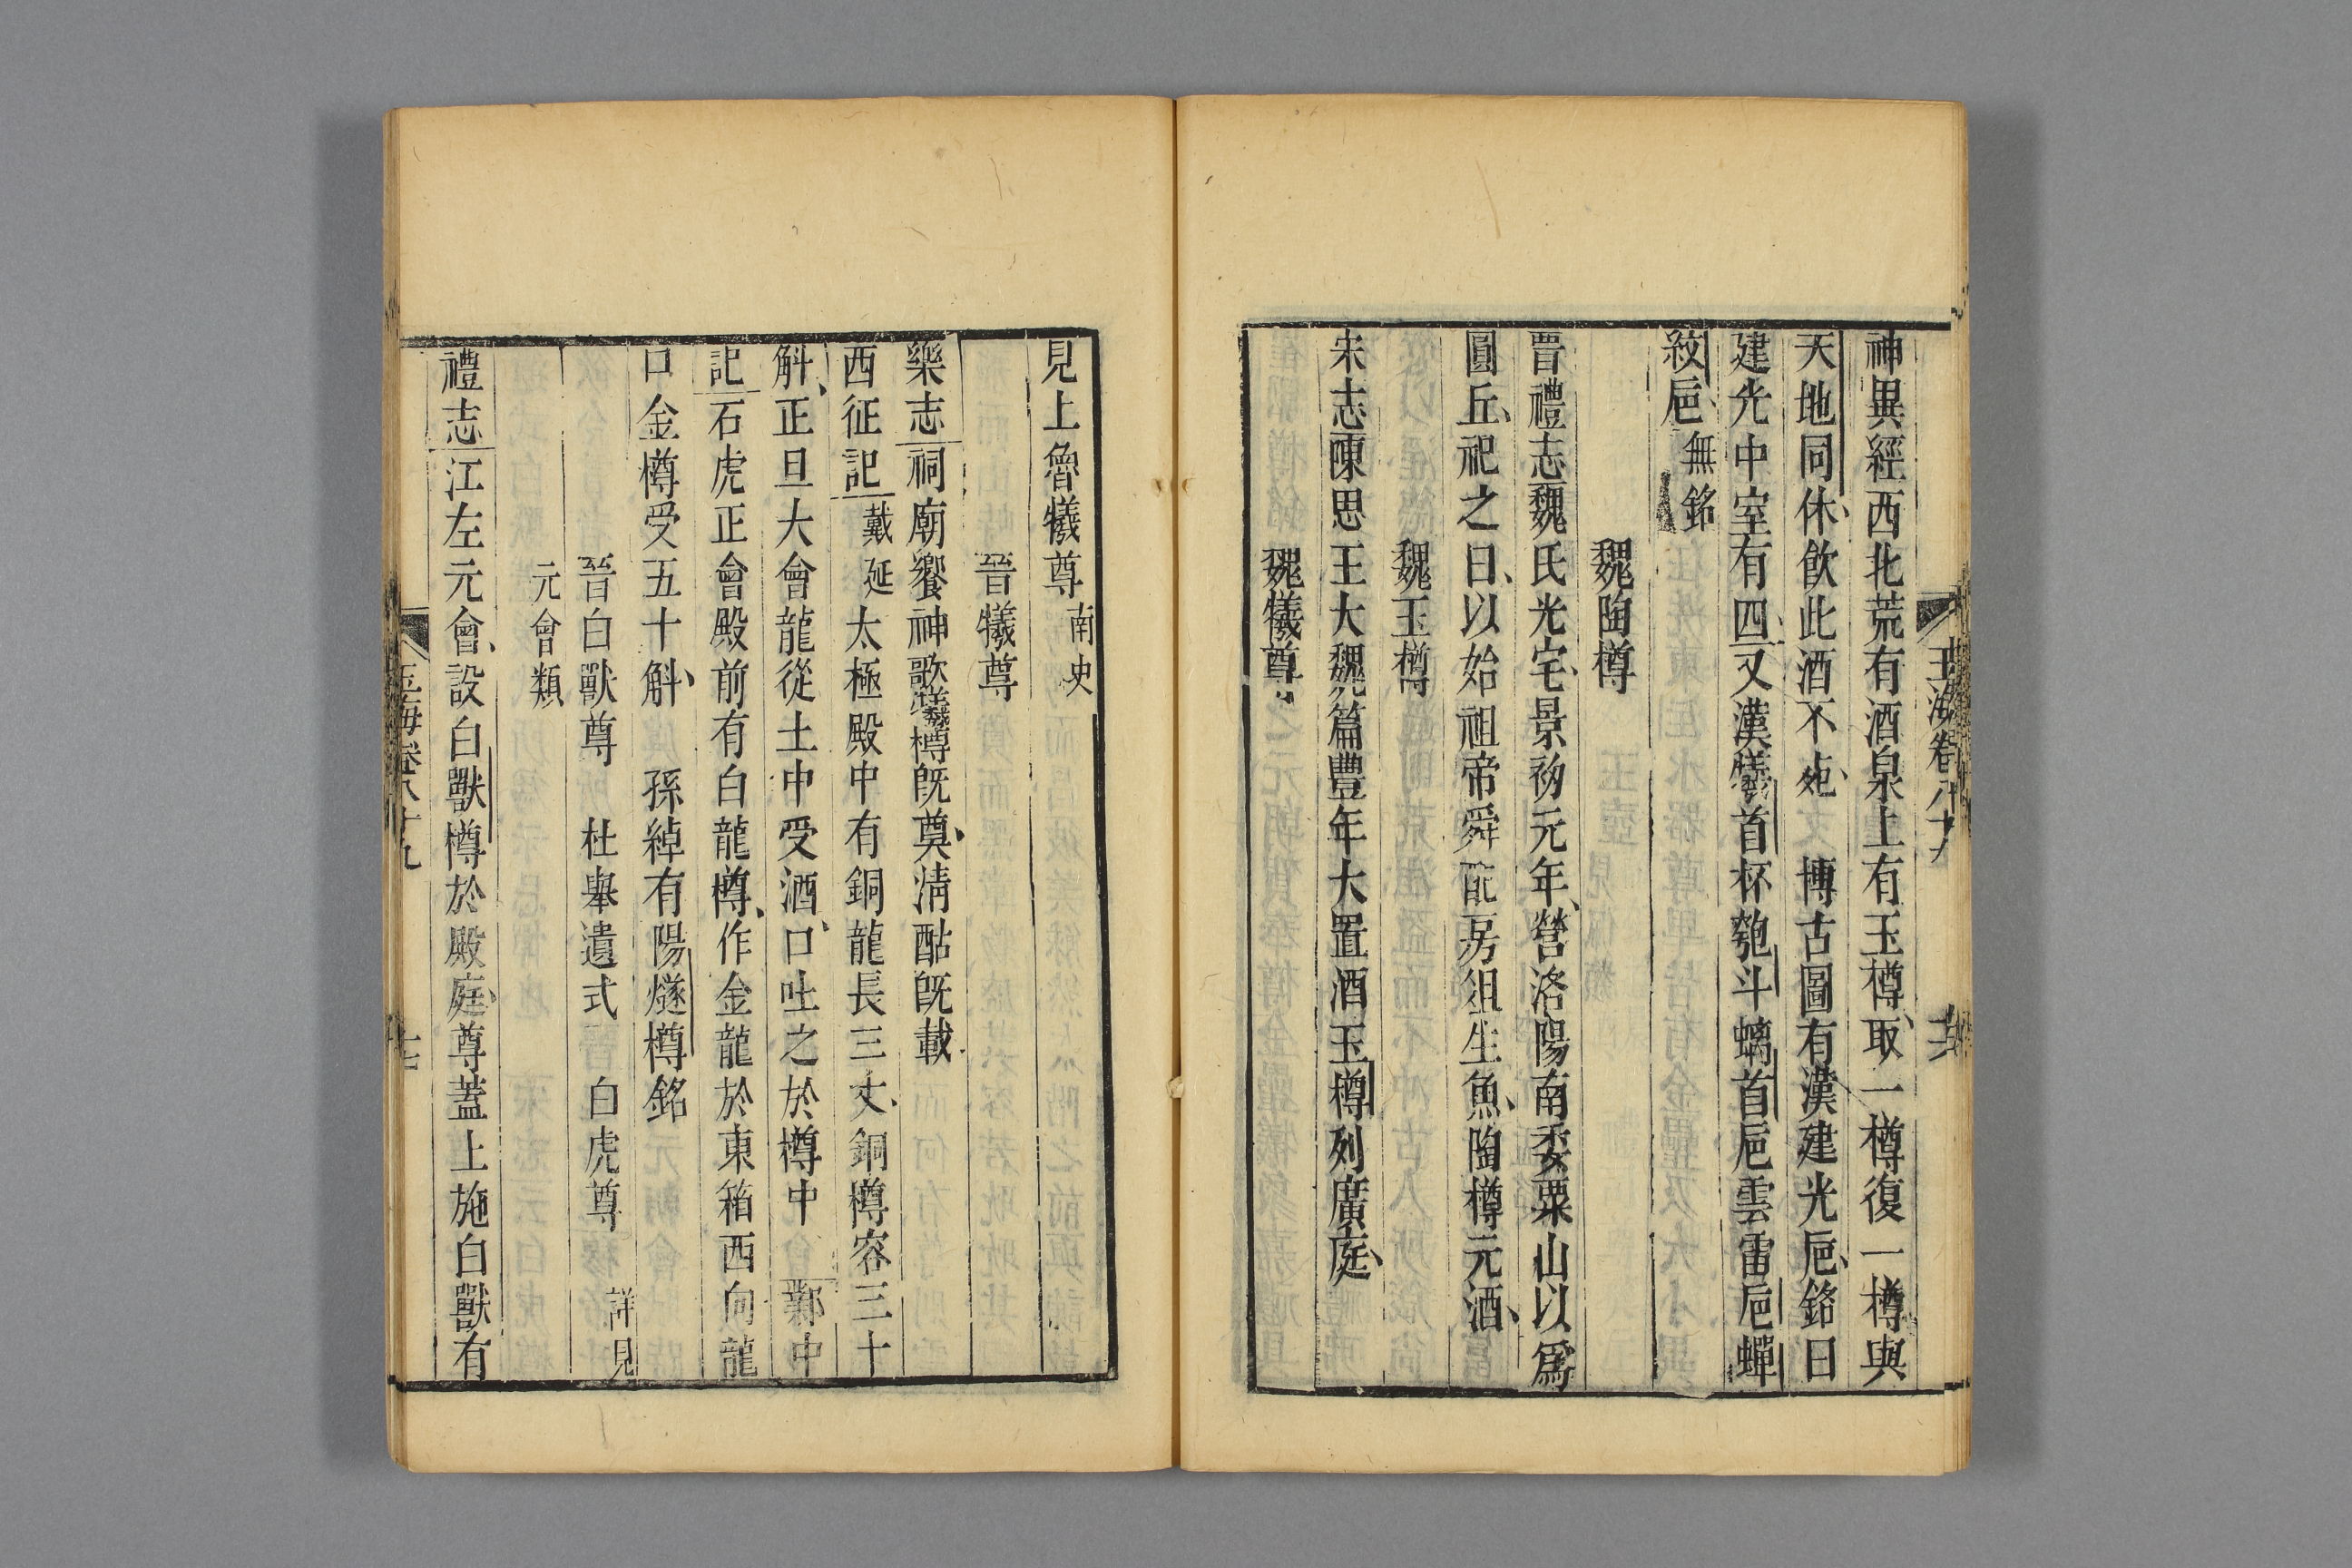 玉海卷八十九
神異經西北荒有酒泉上有玉樽取一樽復一樽與
天地同休飲此酒不死 博古圖有漢建光巵銘曰
建光中室有四又漢犧首杯匏斗螭首巵雲雷巵蟬
紋巵無銘
魏陶樽
晉禮志魏氏光宅景初元年營洛陽南委粟山以爲
圓丘祀之日以始祖帝舜配房俎生魚陶樽元酒
魏玉樽
宋志陳思王大魏篇豐年大置酒玉樽列廣庭
魏犧尊
見上魯犧尊南史
晉犧尊
樂志祠廟饗神歌犧樽旣奠淸酤旣載
西征記戴延太極殿中有銅龍長三丈銅樽容三十
斛正旦大會龍從土中受酒口吐之於樽中 鄴中
記石虎正會殿前有白龍樽作金龍於東箱西向龍
口金樽受五十斛 孫綽有陽燧樽銘
晉白獸尊 杜舉遺式 白虎尊 詳見
元會類
禮志江左元會設白獸樽於殿庭尊蓋上施白獸有
玉海卷八十九